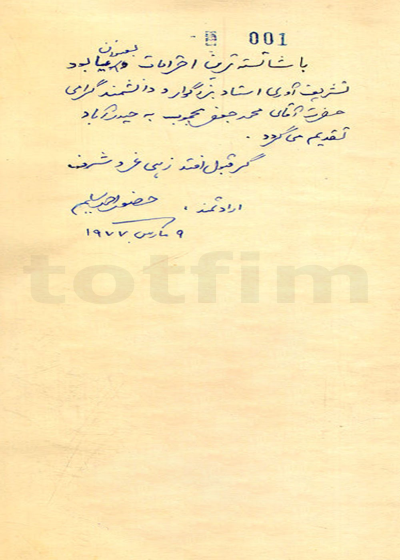 001
بعنوان
با شائسته ترین احترامات و یاد بود
تشریف آوری استاد بزرگوار و دانشمند گرامی
حضرت آقای محمد جعفر محجوب به حیدرآباد
تقدیم می گردد .
گر قبول افتد زهی عز و شرف
ارادتمند ،
۹ مارس ۱۹۷۷
totfim